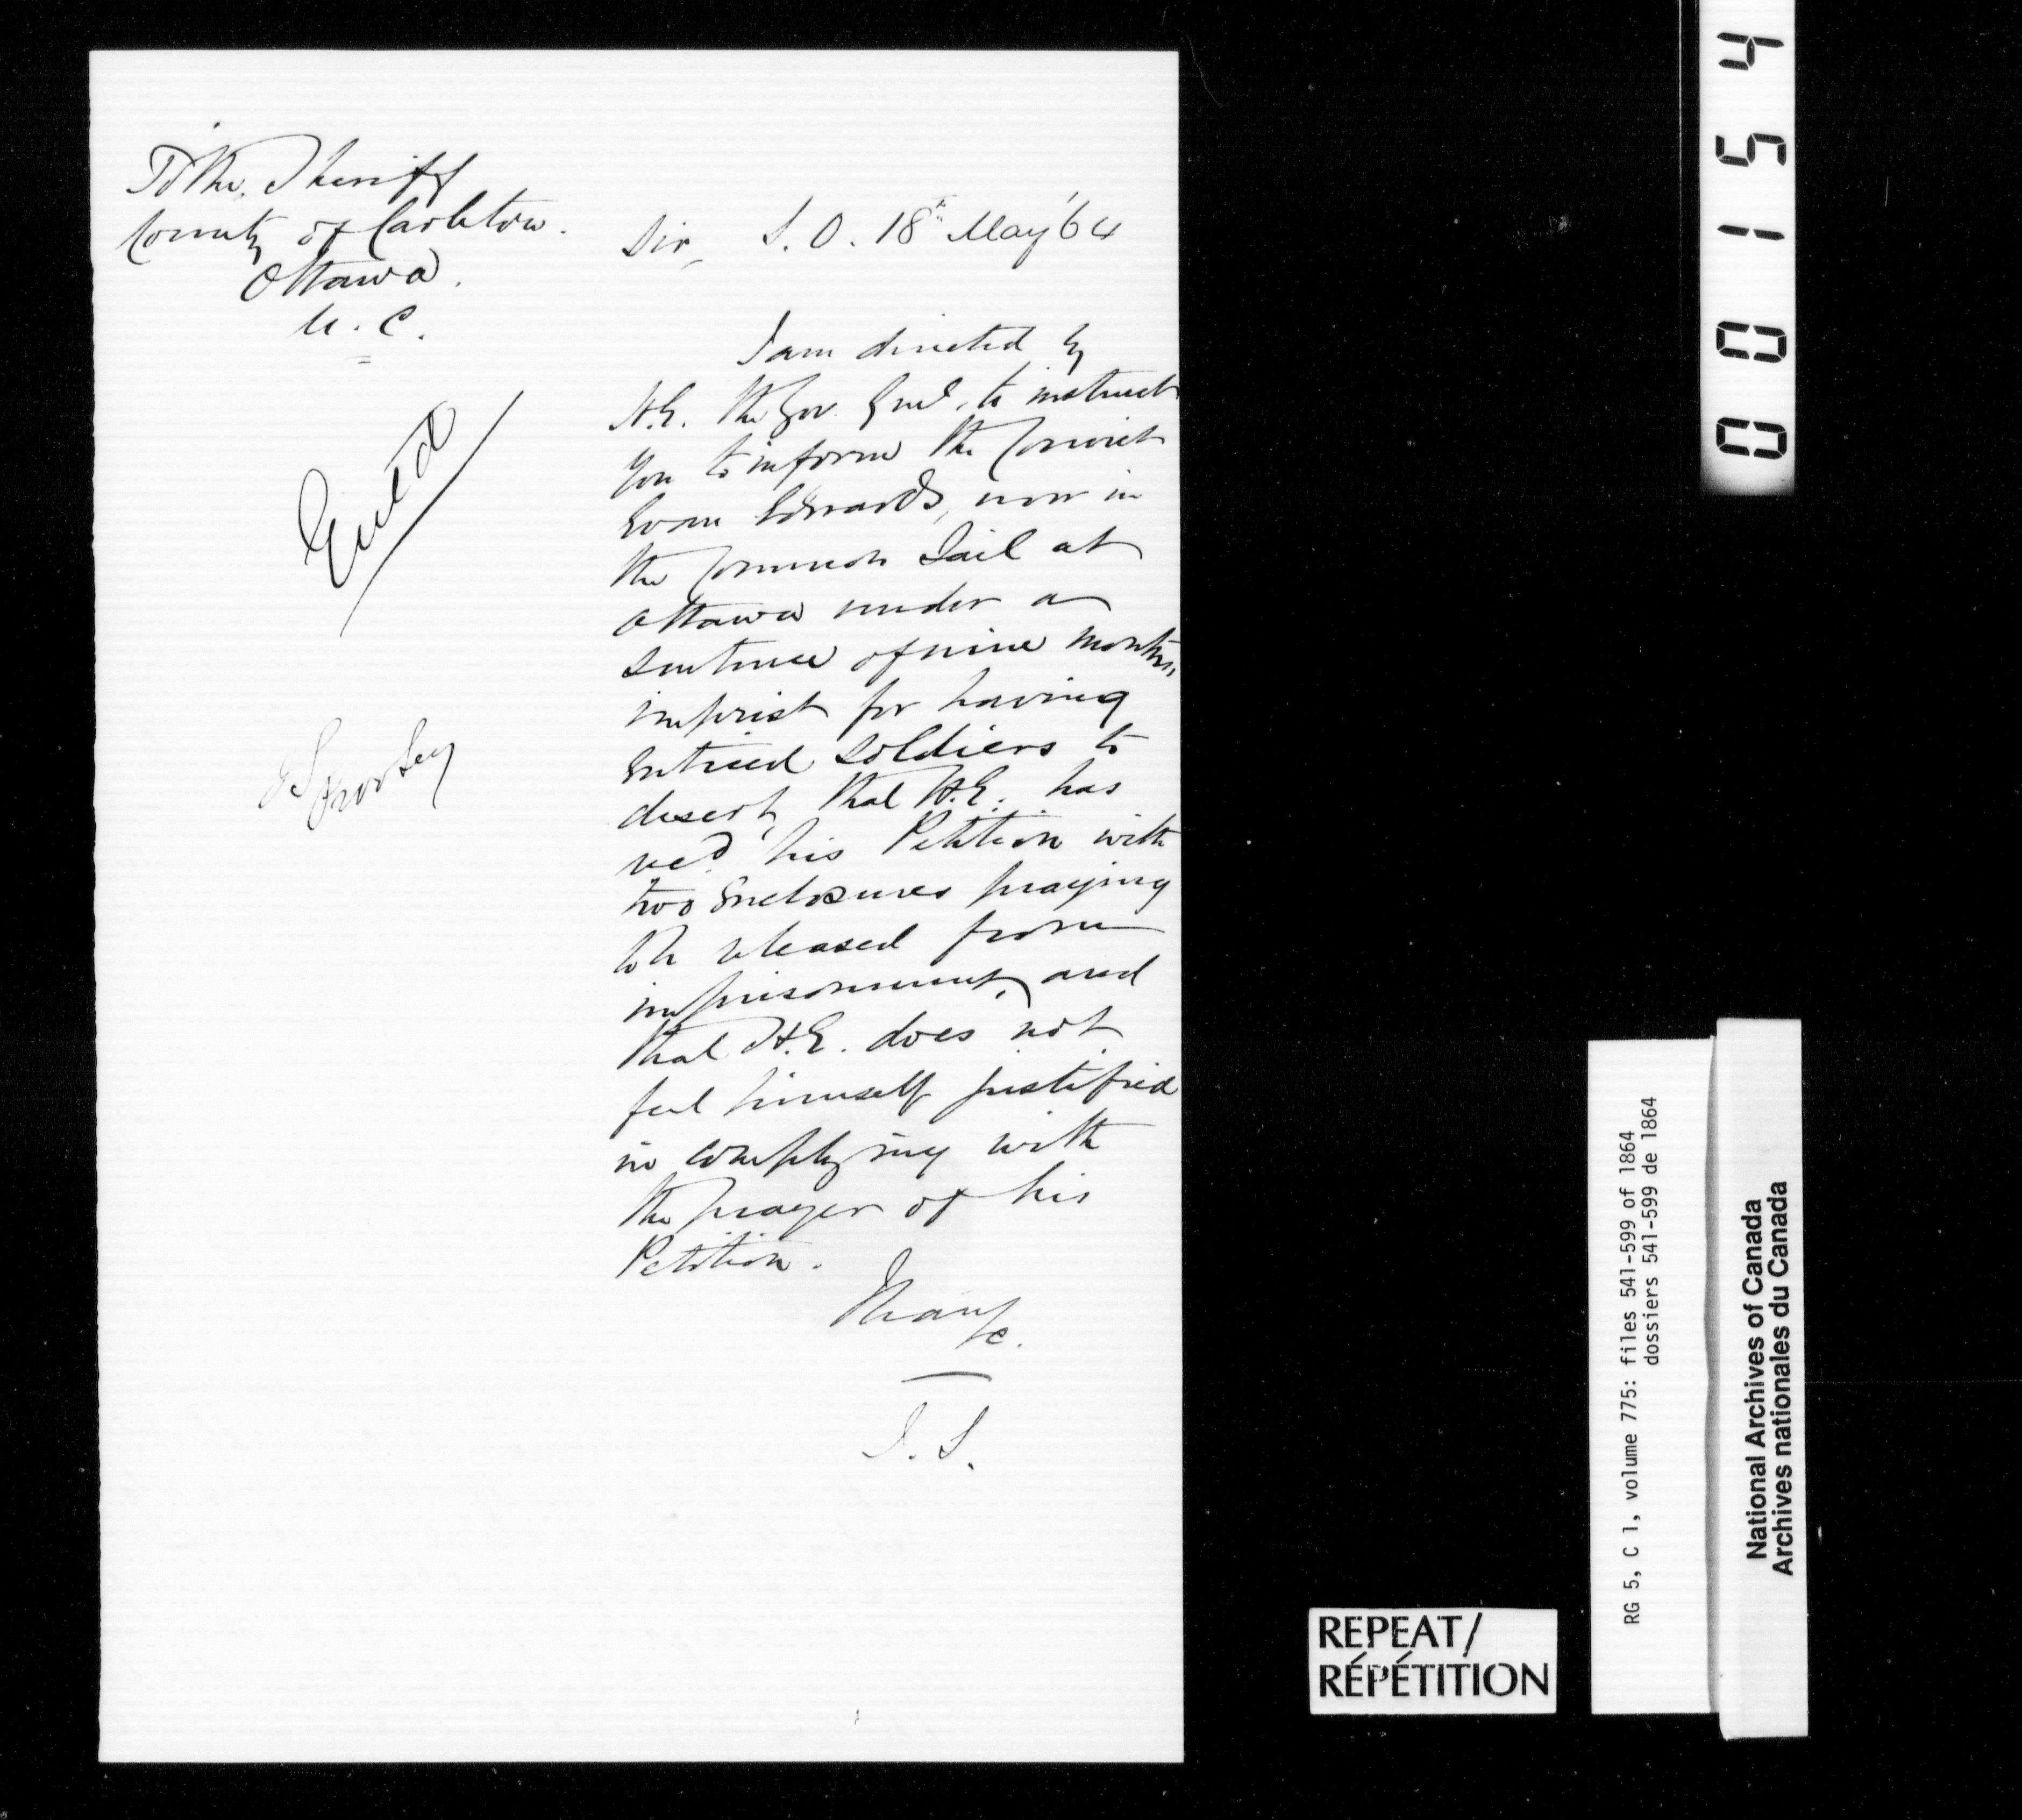 To the Sheriff
County of Carleton.
Ottawa.
U. C.
Ent'd
Sir, S. O. 18th May '64
I am directed by
H.E. the Gov. Genl. to instruct
you to inform the Convict
Evan Edwards, now in
the Common Jail at
Ottawa under a
sentence of nine months
imprist for having
enticed soldiers to
desert, that H.E. has
recd his Petition with
two Enclosures praying
to be released from
imprisonment, and
that H.E. does not
feel himself justified
in complying with
the prayer of his
Petition.
I have
&c.
Prov Sey
00154
RG 5, C 1, volume 775: files 541-599 of 1864
dossiers 541-599 de 1864
National Archives of Canada
Archives nationales du Canada
REPEAT/
RÉPÉTITION